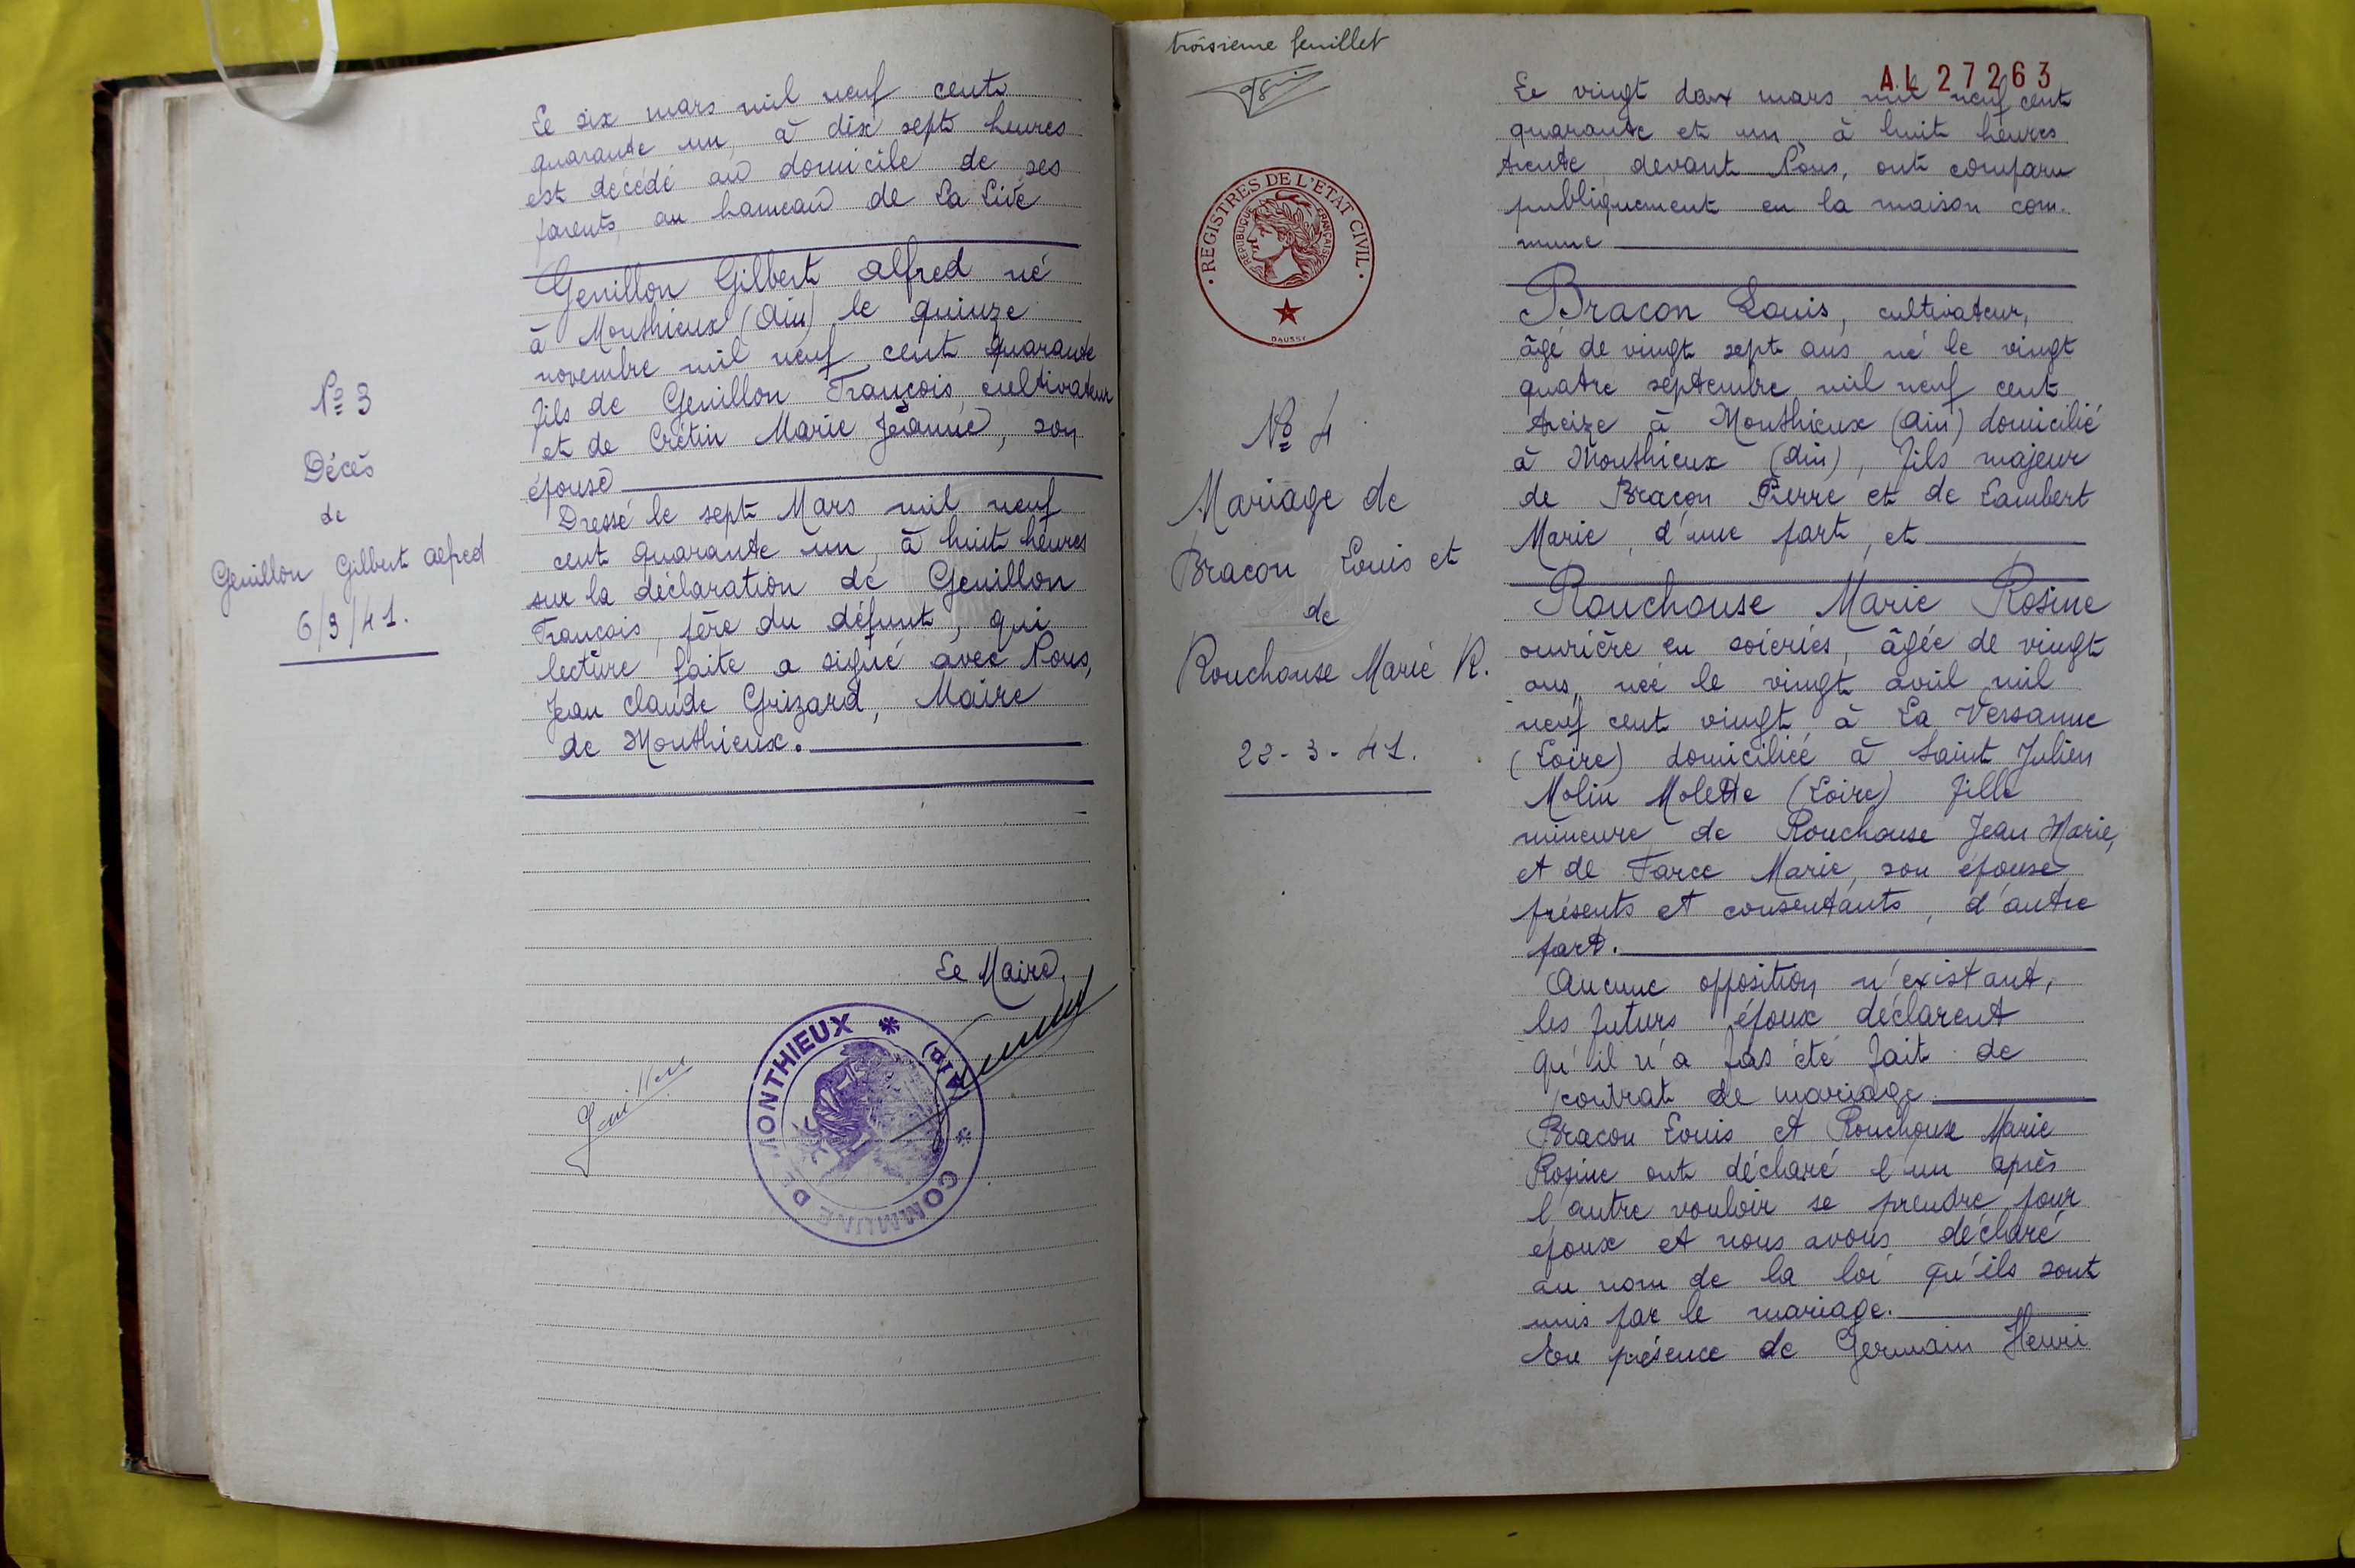 Le six mars mil neuf cent
quarante un, à dix sept heures
est décédé au domicile de ses
parents, au hameau de La
Genillon Gilbert Alfred né
à Monthieux (Ain) le quinze
novembre mil neuf cent quarante
fils de Genillon François, cultivateur
et de Crétin Marie Jeanne, son
épouse
Dressé le sept Mars mil neuf
cent quarante un, à huit heures
sur la déclaration de Genillon
François, père du défunt, qui
lecture faite a signé avec Nous,
Jean Claude Grizard, Maire
de Monthieux.
N° 3
Décès
de
Genillon Gilbert Alfred
6/3/41.
Le Maire,
Genillon
COMMUNE DE MONTHIEUX (AIN)
troisieme feuillet
REGISTRES DE L'ETAT CIVIL
REPUBLIQUE FRANÇAISE
DAUSSY
N° 4
Mariage de
Bracon Louis et
de
Rouchouse Marie R.
22-3-41.
AL 27263
Le vingt deux mars mil neuf cent
quarante et un, à huit heures
trente, devant Nous, ont comparu
publiquement en la maison com-
mune
Bracon Louis, cultivateur,
âgé de vingt sept ans né le vingt
quatre septembre mil neuf cent
treize à Monthieux (Ain) domicilié
à Monthieux (Ain), fils majeur
de Bracon Pierre et de Lambert
Marie, d'une part, et
Rouchouse Marie Rosine
ouvrière en soieries, âgée de vingt
ans, née le vingt avril mil
neuf cent vingt à La Versanne
(Loire) domiciliée à Saint Julien
Molin Molette (Loire) fille
mineure de Rouchouse Jean Marie,
et de Farce Marie, son épouse
présents et consentants, d'autre
part.
Aucune opposition n'existant,
les futurs époux déclarent
qu'il n'a pas été fait de
contrat de mariage
Bracon Louis et Rouchouse Marie
Rosine ont déclaré l'un après
l'autre vouloir se prendre pour
époux et nous avons déclaré
au nom de la loi qu'ils sont
unis par le mariage.
En présence de Germain Henri